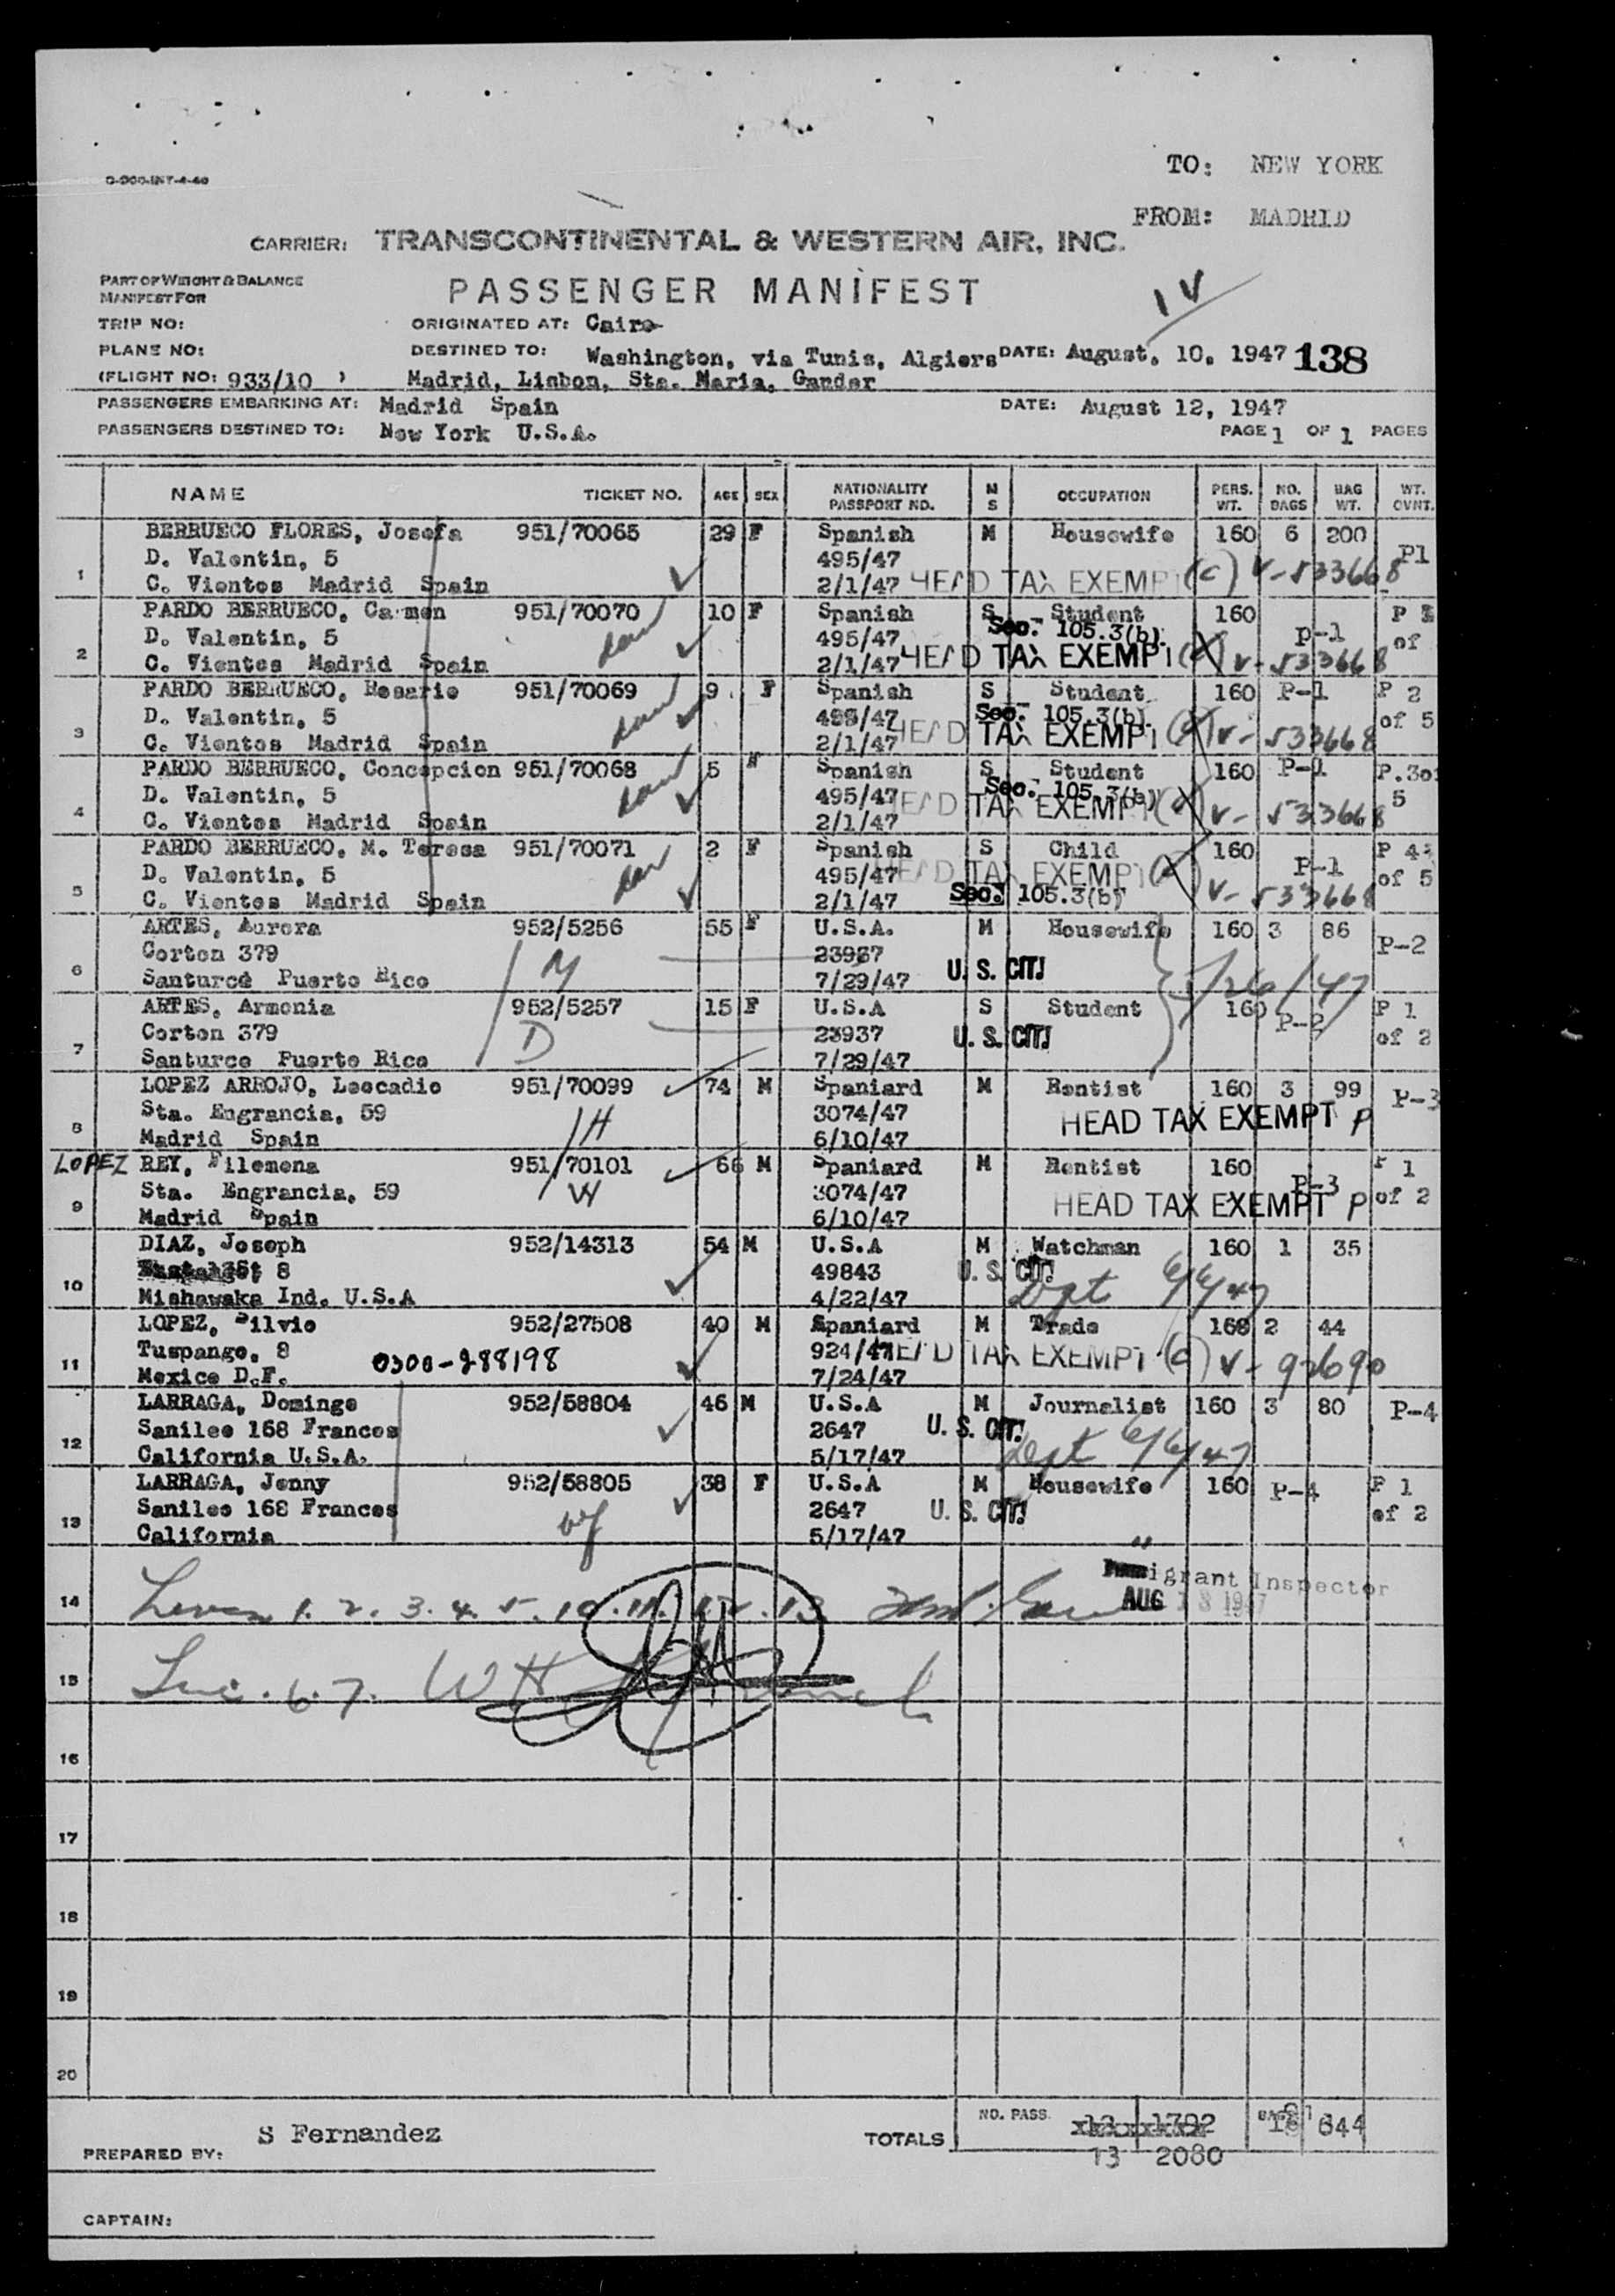 TO: NEW YORK
FROM: MADRID
CARRIER: TRANSCONTINENTAL & WESTERN AIR, INC.
PART OF WEIGHT & BALANCE
MANIFEST FOR
PASSENGER MANIFEST
TRIP NO: ORIGINATED AT: Cairo
PLANE NO: DESTINED TO: Washington, via Tunis, Algiers DATE: August, 10, 1947 138
(FLIGHT NO: 933/10 ) Madrid, Lisbon, Sta. Maria, Gander
PASSENGERS EMBARKING AT: Madrid Spain DATE: August 12, 1947
PASSENGERS DESTINED TO: New York U.S.A. PAGE 1 OF 1 PAGES
NAME TICKET NO. AGE SEX NATIONALITY PASSPORT NO. M S OCCUPATION PERS. WT. NO. BAGS BAG WT. WT. CVNT.
BERRUECO FLORES, Josefa 951/70065 29 F Spanish M Housewife 160 6 200
D. Valentin, 5 495/47 P1
1 C. Vientos Madrid Spain 2/1/47 HEAD TAX EXEMPT (c) V-533668
PARDO BERRUECO, Carmen 951/70070 10 F Spanish S Student 160 P
D. Valentin, 5 495/47 Sec. 105.3(b) P-1 of
2 C. Vientos Madrid Spain 2/1/47 HEAD TAX EXEMPT V-533668
PARDO BERRUECO, Rosario 951/70069 9 F Spanish S Student 160 P-1 P 2
D. Valentin, 5 495/47 Sec. 105.3(b) of 5
3 C. Vientos Madrid Spain 2/1/47 HEAD TAX EXEMPT V-533668
PARDO BERRUECO, Concepcion 951/70068 5 F Spanish S Student 160 P-1 P.3of
D. Valentin, 5 495/47 Sec. 105.3(b) 5
4 C. Vientos Madrid Spain 2/1/47 HEAD TAX EXEMPT V-533668
PARDO BERRUECO, M. Teresa 951/70071 2 F Spanish S Child 160 P 4
D. Valentin, 5 495/47 HEAD TAX EXEMPT P-1 of 5
5 C. Vientos Madrid Spain 2/1/47 Sec. 105.3(b) V-533668
ARTES, Aurora 952/5256 55 F U.S.A. M Housewife 160 3 86
Corton 379 M 23937 P-2
6 Santurce Puerto Rico 7/29/47 U. S. CIT. 5/26/47
ARTES, Armonia 952/5257 15 F U.S.A S Student 160 P-2 P 1
Corton 379 D 23937 U. S. CIT. of 2
7 Santurce Puerto Rico 7/29/47
LOPEZ ARROJO, Leocadio 951/70099 74 M Spaniard M Rentist 160 3 99 P-3
Sta. Engrancia, 59 H 3074/47 HEAD TAX EXEMPT P
8 Madrid Spain 6/10/47
LOPEZ REY, Filomena 951/70101 66 M Spaniard M Rentist 160 P-3 P 1
Sta. Engrancia, 59 W 3074/47 HEAD TAX EXEMPT P of 2
9 Madrid Spain 6/10/47
DIAZ, Joseph 952/14313 54 M U.S.A M Watchman 160 1 35
8 49843 U. S. CIT.
10 Mishawaka Ind. U.S.A 4/22/47 Dept 6/6/47
LOPEZ, Silvio 952/27508 40 M Spaniard M Trade 168 2 44
Tuspango, 8 0300-288198 924/47 HEAD TAX EXEMPT (c) V-92690
11 Mexico D.F. 7/24/47
LARRAGA, Domingo 952/58804 46 M U.S.A M Journalist 160 3 80 P-4
Sanileo 168 Frances 2647 U. S. CIT.
12 California U.S.A. 5/17/47 Dept 6/6/47
LARRAGA, Jenny 952/58805 38 F U.S.A M Housewife 160 P-4 P 1
Sanileo 168 Frances wf 2647 U. S. CIT. of 2
13 California 5/17/47 "
Immigrant Inspector
14 1. 2. 3. 4. 5. 10. 11. 12. 13. AUG 1947
15 6. 7.
16
17
18
19
20
S Fernandez
PREPARED BY:
TOTALS NO. PASS. 13 2080 644
CAPTAIN: